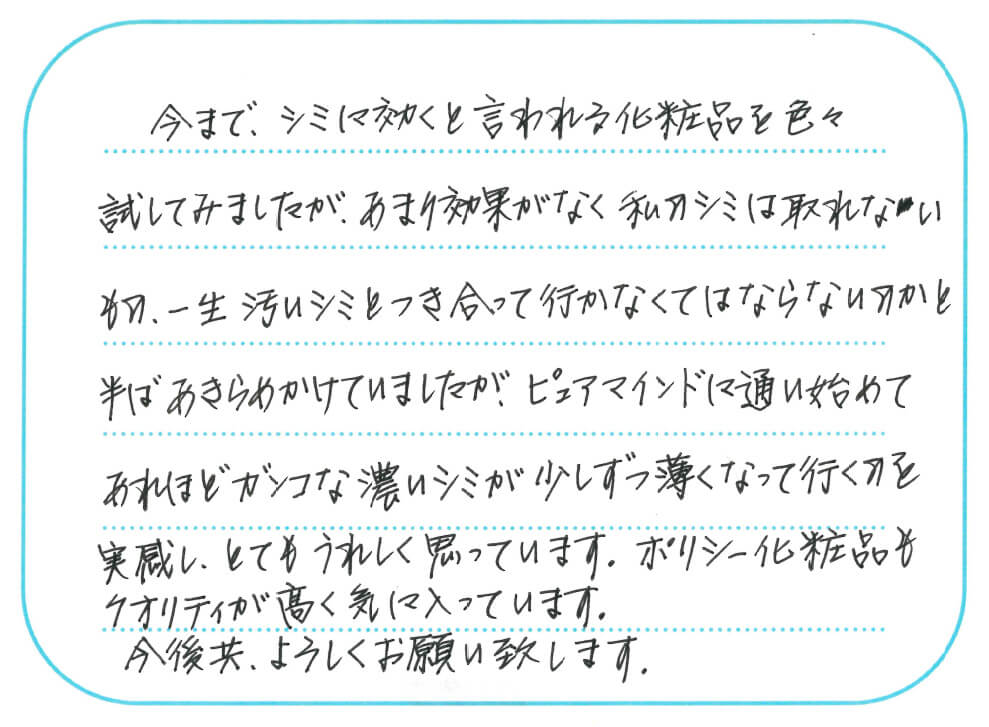 今まで、シミに効くと言われる化粧品を色々
試してみましたが、あまり効果がなく私のシミは取れない
もの、一生汚いシミとつき合って行かなくてはならないのかと
半ばあきらめかけていましたが、ピュアマインドに通い始めて
あれほどガンコな濃いシミが少しずつ薄くなって行くのを
実感し、とてもうれしく思っています。ポリシー化粧品も
クオリティが高く気に入っています。
今後共、よろしくお願い致します。